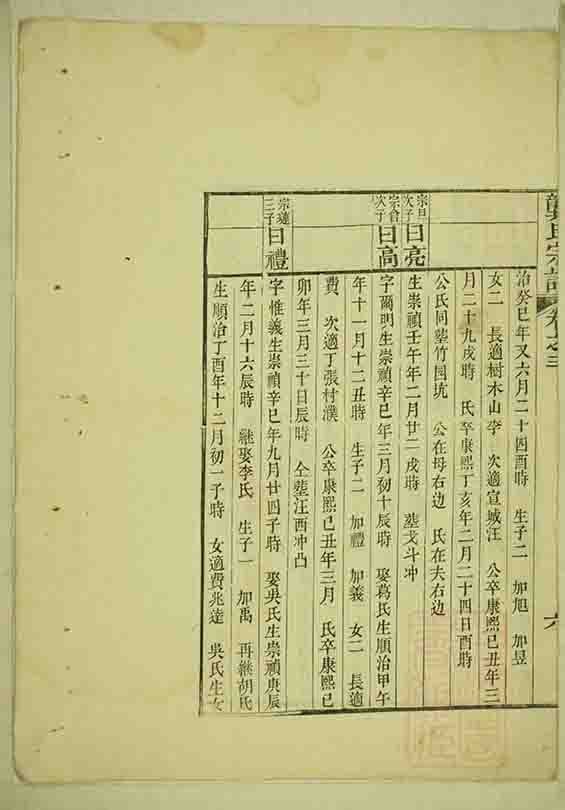 龔氏宗譜 卷之三 六
治癸巳年又六月二十四酉時 生子二 加旭 加昱
女二 長適樹木山李 次適宣城汪 公卒康熙己丑年三
月二十九戌時 氏卒康熙丁亥年二月二十四日酉時
公氏同塟竹园坑 公在母右边 氏在夫右边
宗旦次子 曰亮
生崇禎壬午年二月廿二戌時 塟戈斗冲
宗會次子 曰高
字爾明生崇禎辛巳年三月初十辰時 娶葛氏生順治甲午
年十一月十二丑時 生子二 加禮 加義 女二 長適
費 次適丁張村濮 公卒康熙己丑年三月 氏卒康熙己
卯年三月三十日辰時 仝塟汪西冲凸
宗璉三子 曰禮
字惟義生崇禎辛巳年九月廿四子時 娶吳氏生崇禎庚辰
年二月十六辰時 継娶李氏 生子一 加禹 再継胡氏
生順治丁酉年十二月初一子時 女適費兆達 吳氏生女